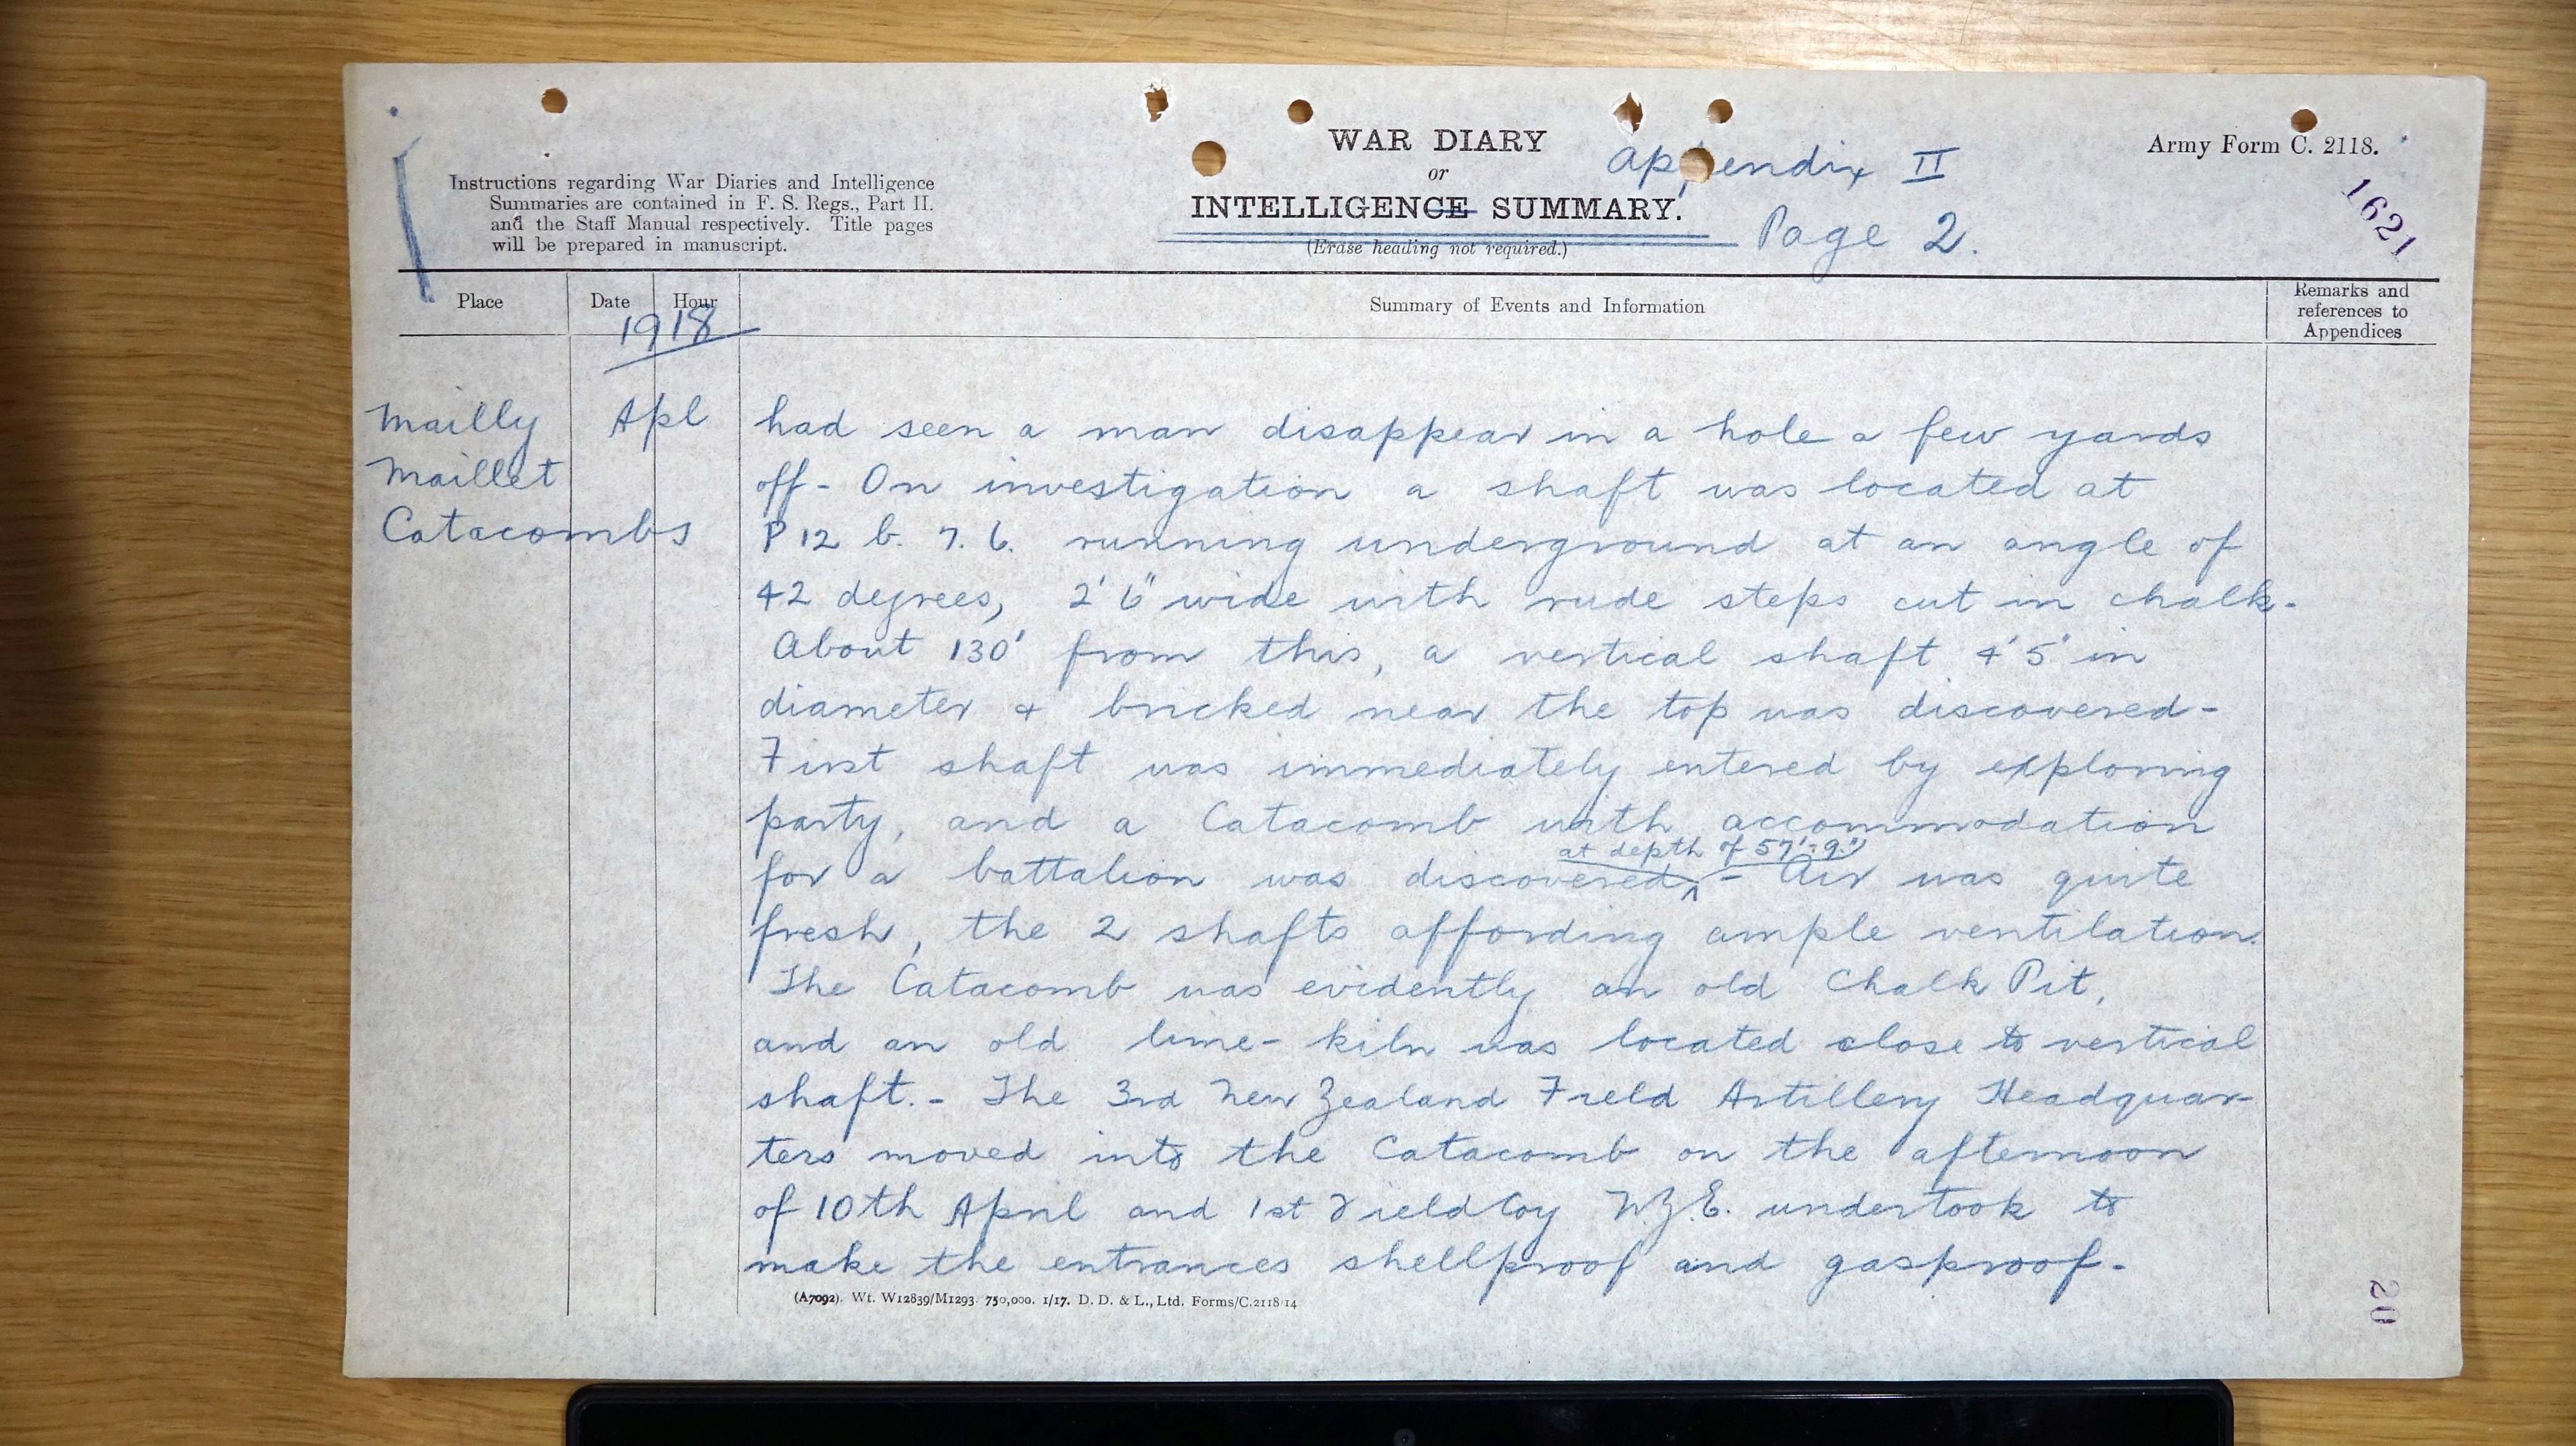 WAR DIARY
or
INTELLIGENCE SUMMARY.
(Erase heading not required.)
Appendix II
Page 2.
Army Form C. 2118.
1621
Instructions regarding War Diaries and Intelligence
Summaries are contained in F. S. Regs., Part II.
and the Staff Manual respectively. Title pages
will be prepared in manuscript.
Place
Date
Hour
1918
Summary of Events and Information
Remarks and
references to
Appendices
Mailly
Maillet
Catacombs
Apl
had seen a man disappear in a hole a few yards
off - On investigation a shaft was located at
P 12 b. 7. 6. running underground at an angle of
42 degrees, 2' 6" wide with rude steps cut in chalk.
About 130' from this, a vertical shaft 4' 5" in
diameter + bricked near the top was discovered -
First shaft was immediately entered by exploring
party, and a Catacomb with accommodation
at depth of 57'-9"
for a battalion was discovered - Air was quite
fresh, the 2 shafts affording ample ventilation.
The Catacomb was evidently an old Chalk Pit,
and an old lime-kiln was located close to vertical
shaft. - The 3rd New Zealand Field Artillery Headquar-
ters moved into the Catacomb on the afternoon
of 10th April and 1st Field Coy N.Z.E. undertook to
make the entrances shellproof and gasproof.
(A7092). Wt. W12839/M1293. 750,000. 1/17. D. D. & L., Ltd. Forms/C.2118/14
20